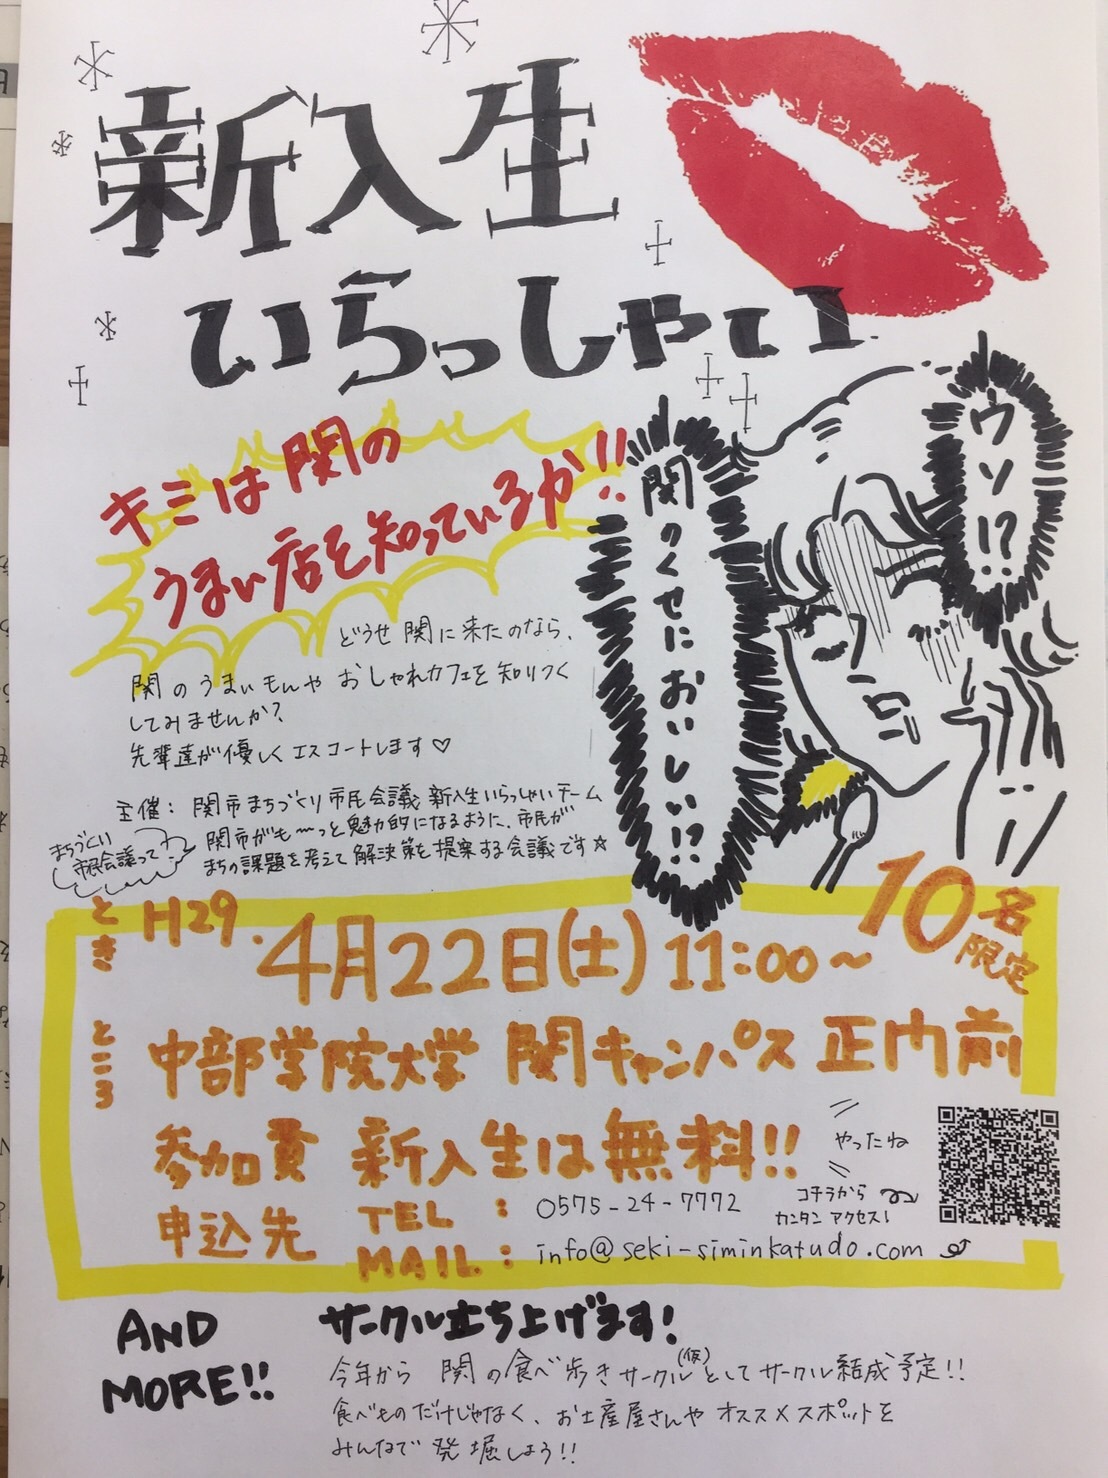 新入生
いらっしゃい
キミは関の
うまい店を知っているか!!
ウソ!?
関のくせにおいしい!?
どうせ関に来たのなら、
関のうまいもんやおしゃれカフェを知りつく
してみませんか?
先輩達が優しくエスコートします♡
主催: 関市まちづくり市民会議 新入生いらっしゃいチーム
まちづくり
市民会議って?
関市がも〜っと魅力的になるように、市民が
まちの課題を考えて解決策を提案する会議です☆
とき H29. 4月22日(土) 11:00〜
10名
限定
ところ 中部学院大学 関キャンパス 正門前
参加費 新入生は無料!!
やったね
申込先 TEL : 0575-24-7772
MAIL : info@seki-siminkatudo.com
コチラから
カンタンアクセス!
AND
MORE!!
サークル立ち上げます!
今年から 関の食べ歩きサークル(仮)としてサークル結成予定!!
食べものだけじゃなく、お土産屋さんやオススメスポットを
みんなで発掘しよう!!